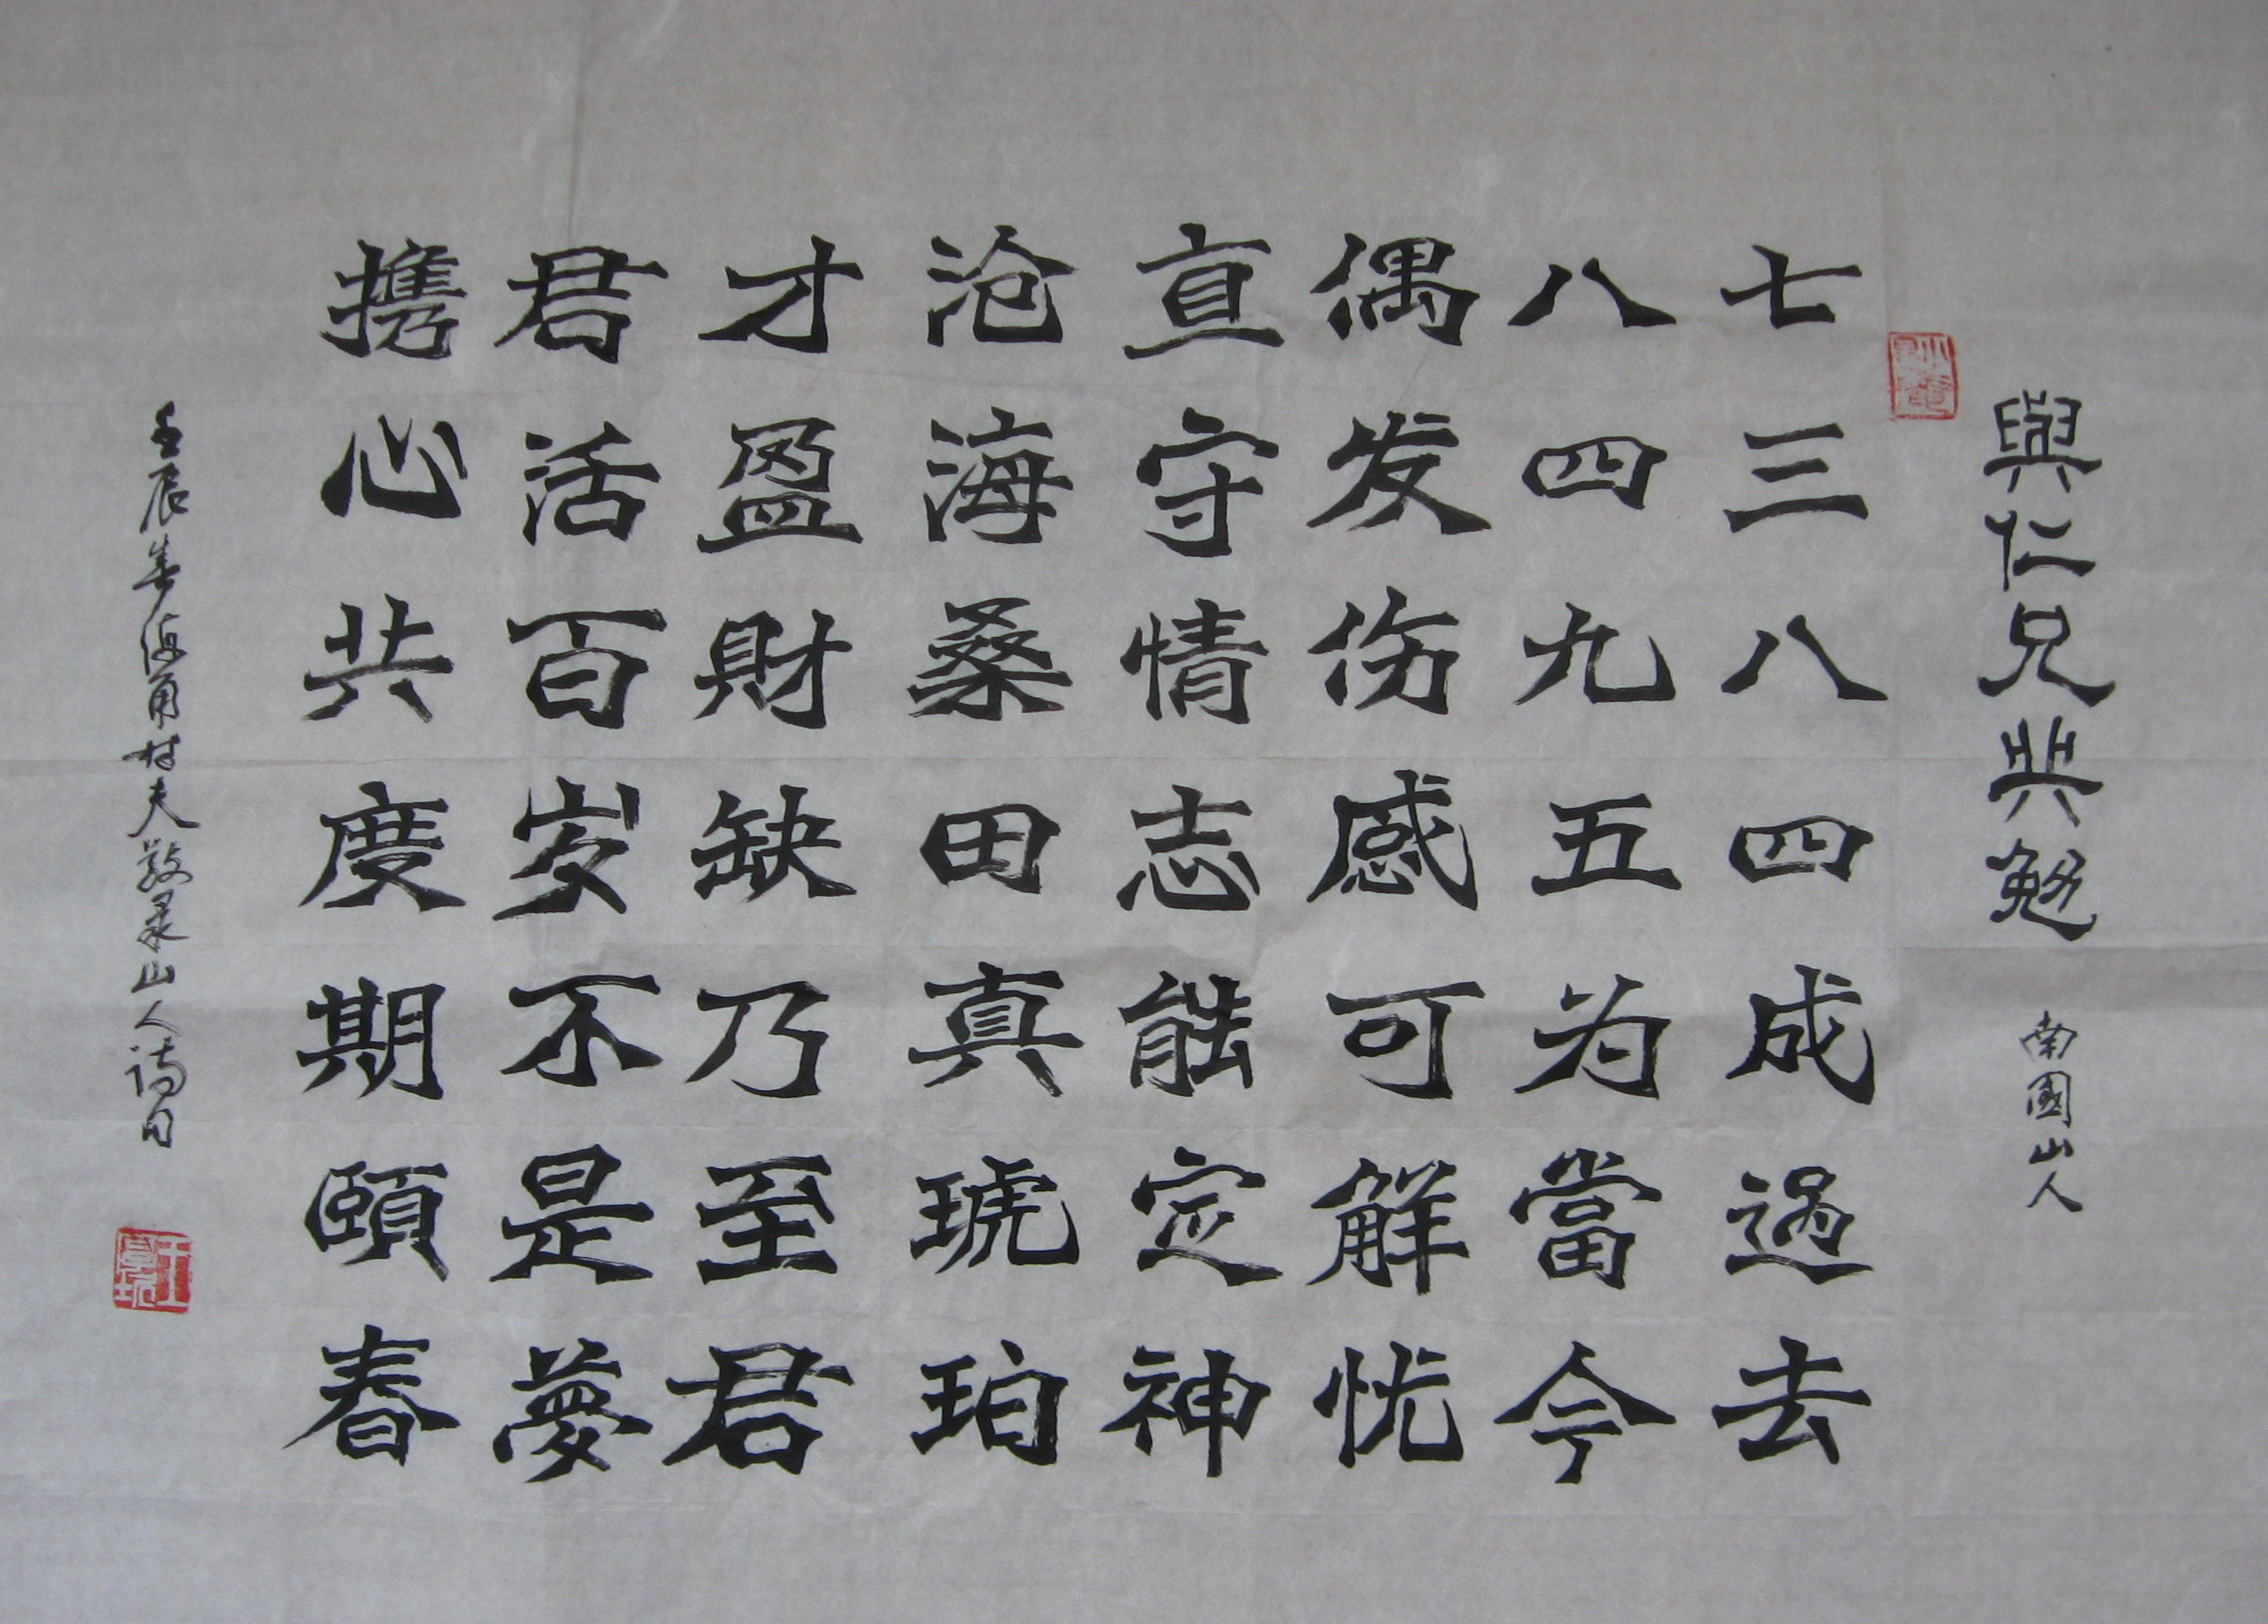 與仁兄共勉 南國山人
七三八四成過去
八四九五为當今
偶发伤感可解忧
直守情志能定神
沧海桑田真琥珀
才盈財缺乃至君
君活百岁不是夢
携心共度期頤春
壬辰春海角村夫敬录山人詩句